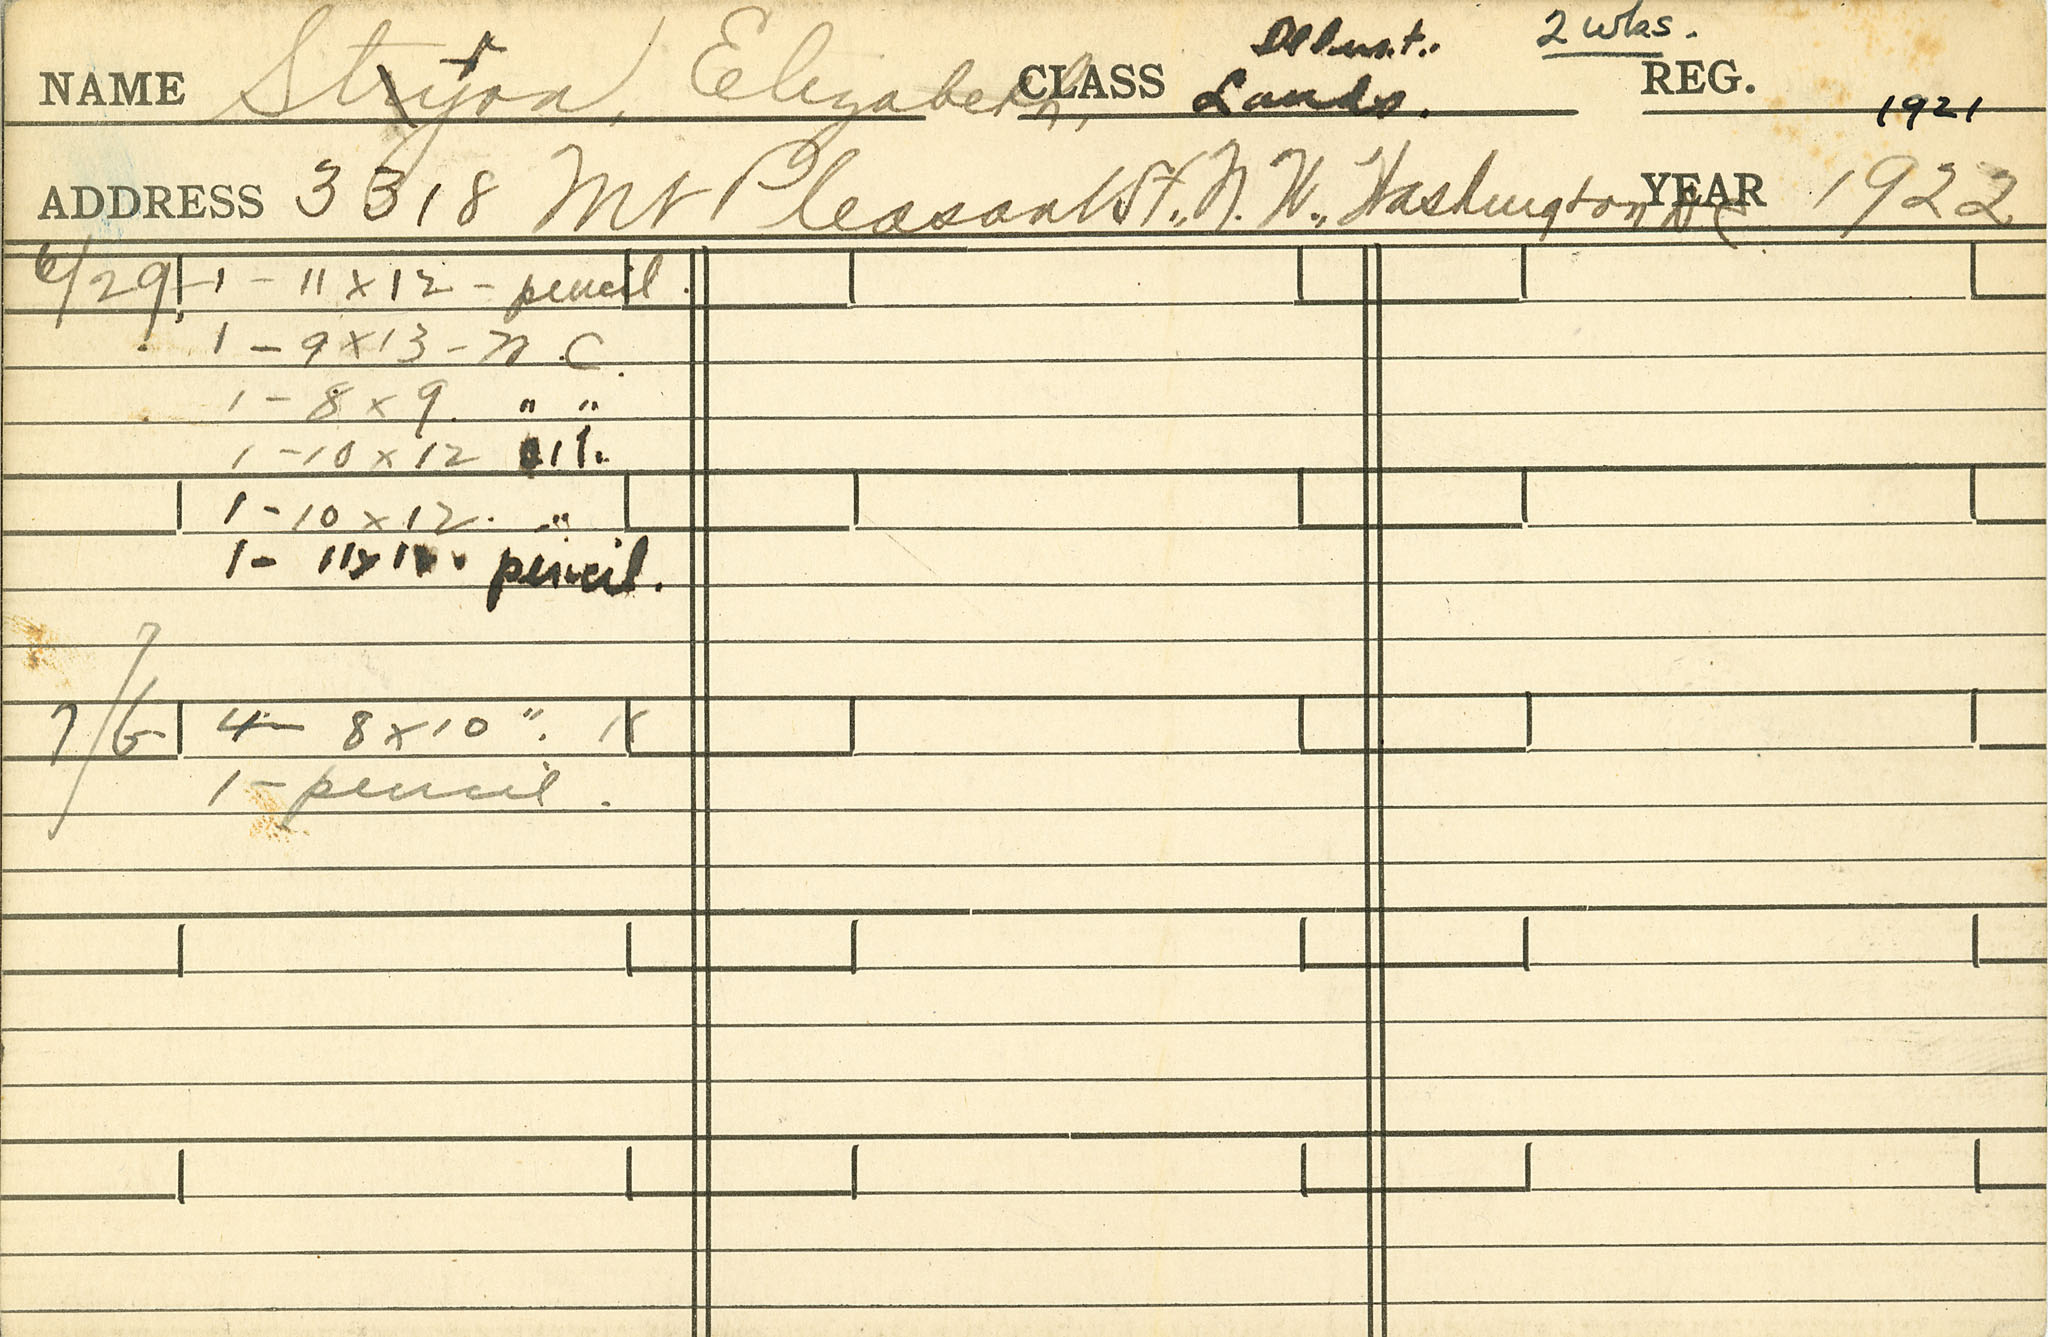 Illust. 2 wks.
NAME Stryon, Elizabeth, CLASS Lands. REG.
1921
ADDRESS 3318 Mt Pleasant St., N. W., Washington D C YEAR 1922
6/29 1 - 11 x 12 - pencil.
1 - 9 x 13 - W. C.
1 - 8 x 9. " "
1 - 10 x 12
1 - 10 x 12. "
1 - pencil.
7/6 4 - 8 x 10 ".
1 - pencil.